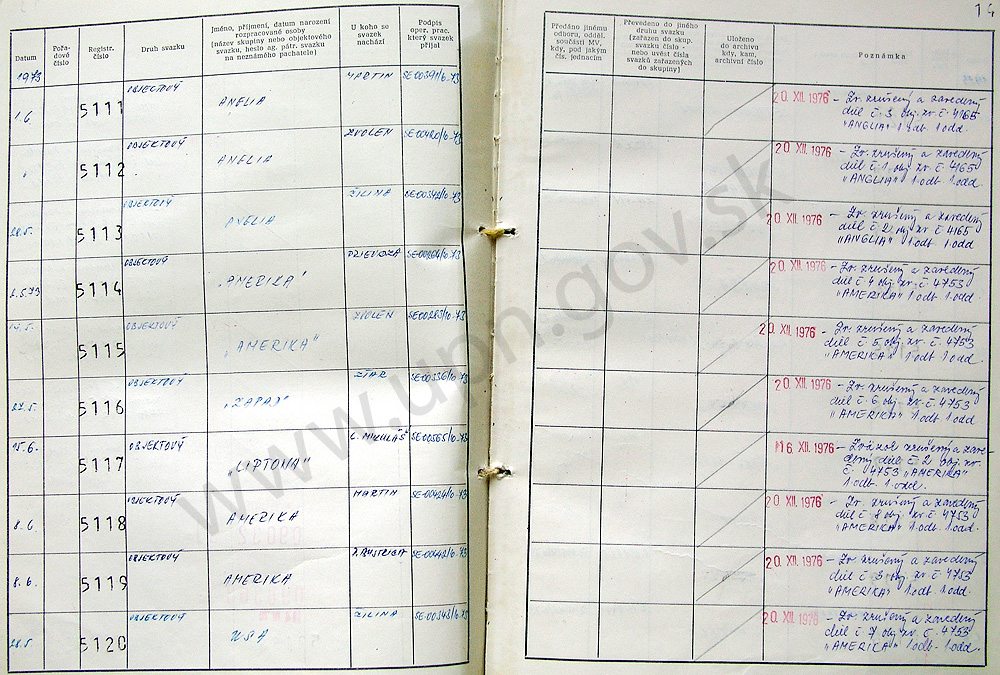 14
Datum
Pořa-
dové
číslo
Registr.
číslo
Druh svazku
Jméno, příjmení, datum narození
rozpracované osoby
(název skupiny nebo objektového
svazku, heslo ag. pátr. svazku
na neznámého pachatele)
U koho se
svazek
nachází
Podpis
oper. prac.
který svazek
přijal
Předáno jinému
odboru, odděl.
součásti MV,
kdy, pod jakým
čís. jednacím
Převedeno do jiného
druhu svazku
(zařazen do skup.
svazku číslo -
nebo uvést čísla
svazků zařazených
do skupiny)
Uloženo
do archivu
kdy, kam,
archivní číslo
Poznámka
1973
1.6. 5111 OBJEKTOVÝ ANGLIA MARTIN SE-00391/10-73
20. XII. 1976 - Zv. zrušený a zavedený
diel č. 3 obj. zv. č. 4165
"ANGLIA" 1 odt. 1 odd.
5112 OBJEKTOVÝ ANGLIA ZVOLEN
20. XII. 1976 - Zv. zrušený a zavedený
diel č. 1 obj. zv. č. 4165
"ANGLIA" 1 odt. 1 odd.
28.5. 5113 OBJEKTOVÝ ANGLIA ŽILINA
20. XII. 1976 - Zv. zrušený a zavedený
diel č. 2 obj. zv. č. 4165
"ANGLIA" 1 odt. 1 odd.
2.5.73 5114 OBJEKTOVÝ "AMERIKA" PRIEVIDZA
20. XII. 1976 - Zv. zrušený a zavedený
diel č. 4 obj. zv. č. 4753
"AMERIKA" 1 odt. 1 odd.
14.5. 5115 OBJEKTOVÝ "AMERIKA" ZVOLEN SE-00283/10-73
20. XII. 1976 - Zv. zrušený a zavedený
diel č. 5 obj. zv. č. 4753
"AMERIKA" 1 odt. 1 odd.
5116 OBJEKTOVÝ "ZAPAD" ŽIAR SE-00336/10-73
20. XII. 1976 - Zv. zrušený a zavedený
diel č. 6 obj. zv. č. 4753
"AMERIKA" 1 odt. 1 odd.
15.6. 5117 OBJEKTOVÝ "LIPTONA" L. MIKULÁŠ SE-00565/10-73
16. XII. 1976 - Zväzok zrušený a zave-
dený diel č. 2 obj. zv.
č. 4753 "AMERIKA"
1 odt. 1 odd.
8.6. 5118 OBJEKTOVÝ AMERIKA MARTIN SE-00424/10-73
20. XII. 1976 - Zv. zrušený a zavedený
diel č. 8 obj. zv. č. 4753
"AMERIKA" 1 odt. 1 odd.
8.6. 5119 OBJEKTOVÝ AMERIKA
20. XII. 1976 - Zv. zrušený a zavedený
diel č. 3 obj. zv. č. 4753
"AMERIKA" 1 odt. 1 odd.
28.5. 5120 OBJEKTOVÝ USA ŽILINA SE-00343/10-73
20. XII. 1976 - Zv. zrušený a zavedený
diel č. 7 obj. zv. č. 4753
"AMERIKA" 1 odt. 1 odd.
www.upn.gov.sk